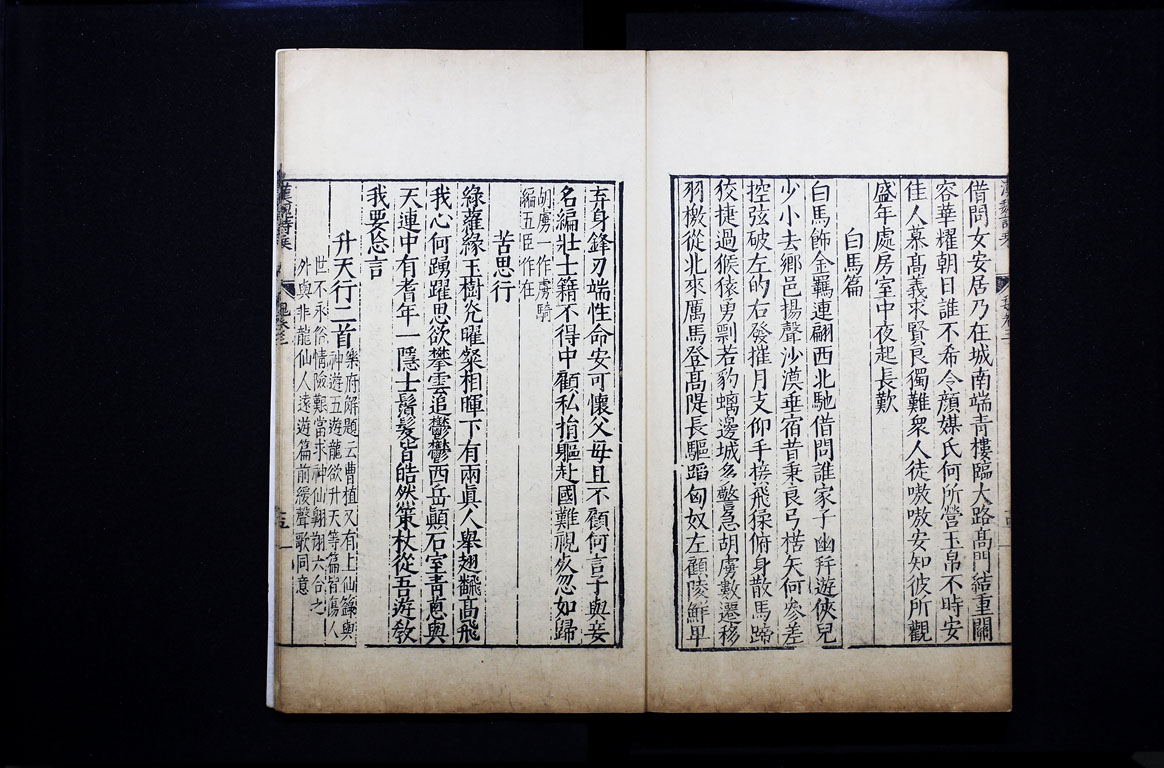 借問女安居乃在城南端青樓臨大路髙門結重關
容華耀朝日誰不希令顔媒氏何所營玉帛不時安
佳人慕髙義求賢良獨難衆人徒嗷嗷安知彼所觀
盛年處房室中夜起長歎
白馬篇
白馬飾金羈連翩西北馳借問誰家子幽幷遊俠兒
少小去鄉邑揚聲沙漠垂宿昔秉良弓楛矢何參差
控弦破左的右發摧月支仰手接飛猱俯身散馬蹄
狡捷過猴猿勇剽若豹螭邊城多警急胡虜數遷移
羽檄從北來厲馬登髙隄長驅蹈匈奴左顧陵鮮卑
弃身鋒刃端性命安可懷父母且不顧何言子與妾
名編壯士籍不得中顧私捐軀赴國難視死忽如歸
胡虜一作虜騎
編五臣作在
苦思行
綠蘿緣玉樹光曜粲相暉下有兩眞人舉翅翻髙飛
我心何踴躍思欲攀雲追鬱鬱西岳顚石室青蔥與
天連中有耆年一隱士鬚髮皆皓然策杖從吾遊敎
我要忘言
升天行二首
樂府解題云曹植又有上仙籙與
神遊五遊龍欲升天等篇皆傷人
世不永俗情險艱當求神仙翺翔六合之
外與非龍仙人遠遊篇前緩聲歌同意
漢魏詩乗
魏卷之
十五